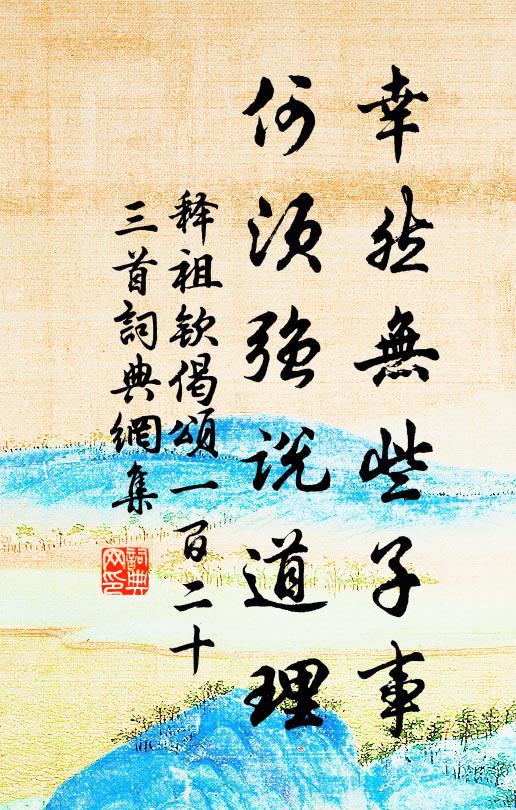 幸然無些子事
何須強説道理
释祖钦偈頌一百二十
三首詞典網集
詞典
网印